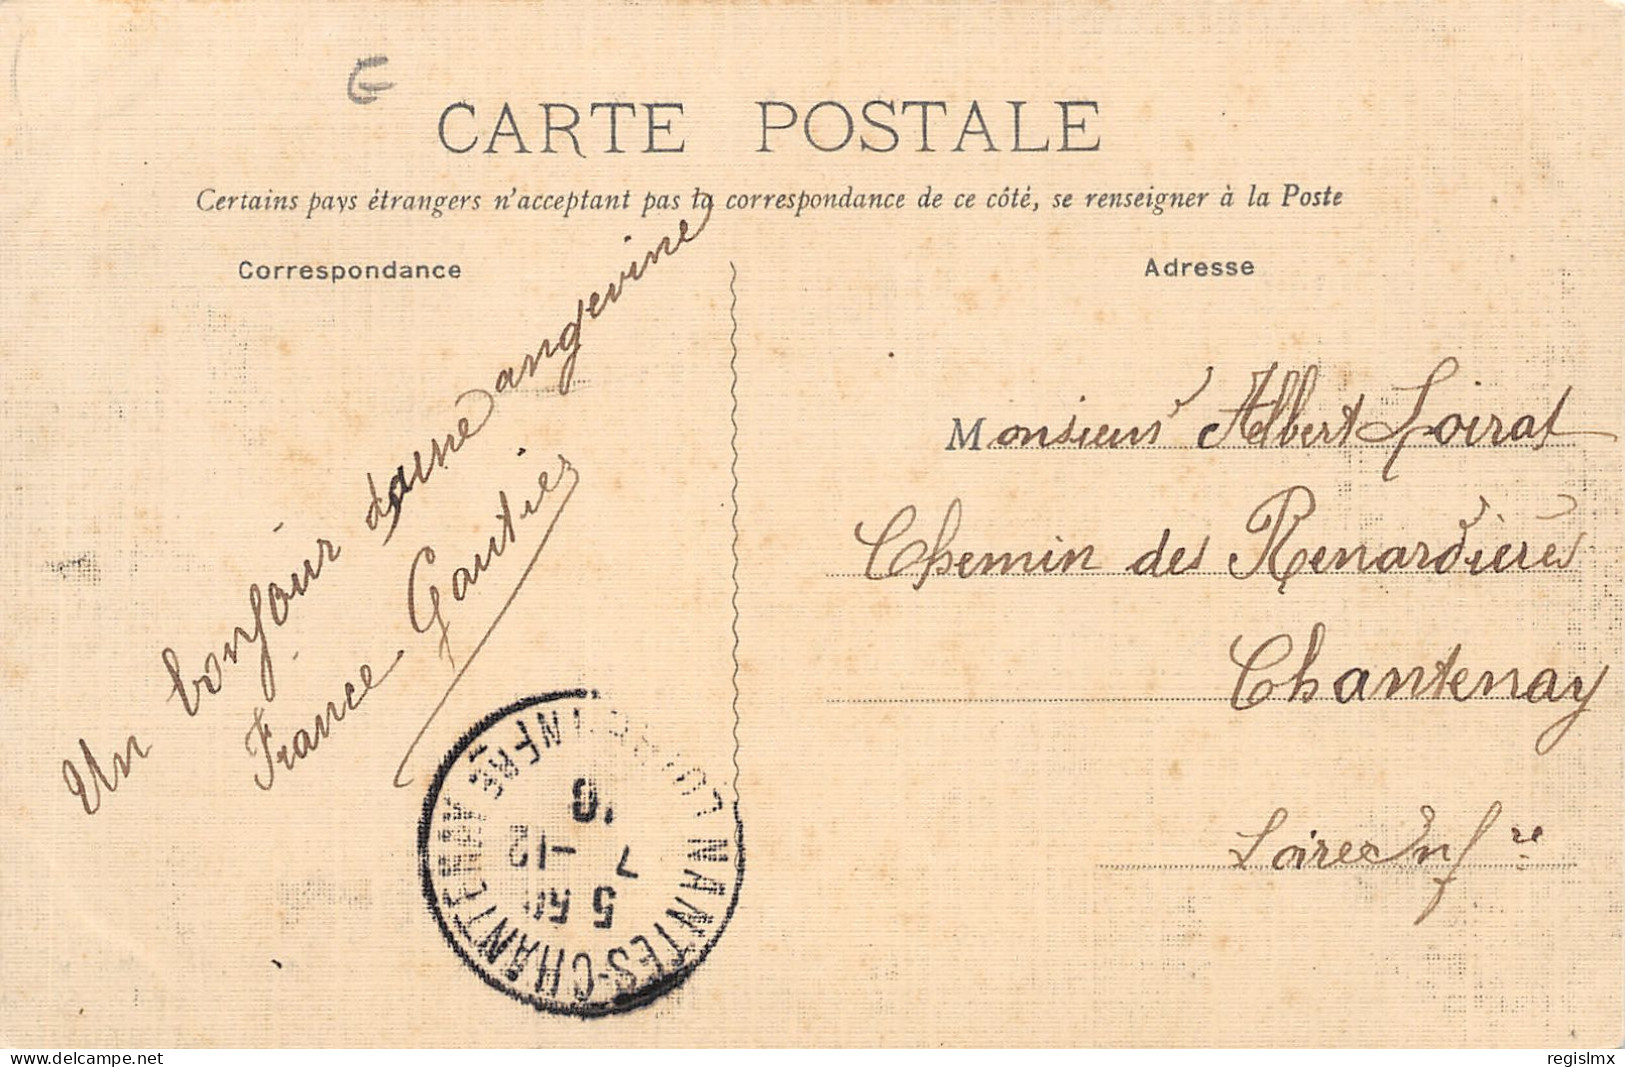 E
CARTE POSTALE
Certains pays étrangers n'acceptant pas la correspondance de ce côté, se renseigner à la Poste
Correspondance
Adresse
Un bonjour d'une angevine
France Gautier
Monsieur Albert Loirat
Chemin des Renardières
Chantenay
Loire Infre
NANTES-CHANTENAY
LOIRE INFRE
5 50
7 -12
10
www.delcampe.net
regislmx